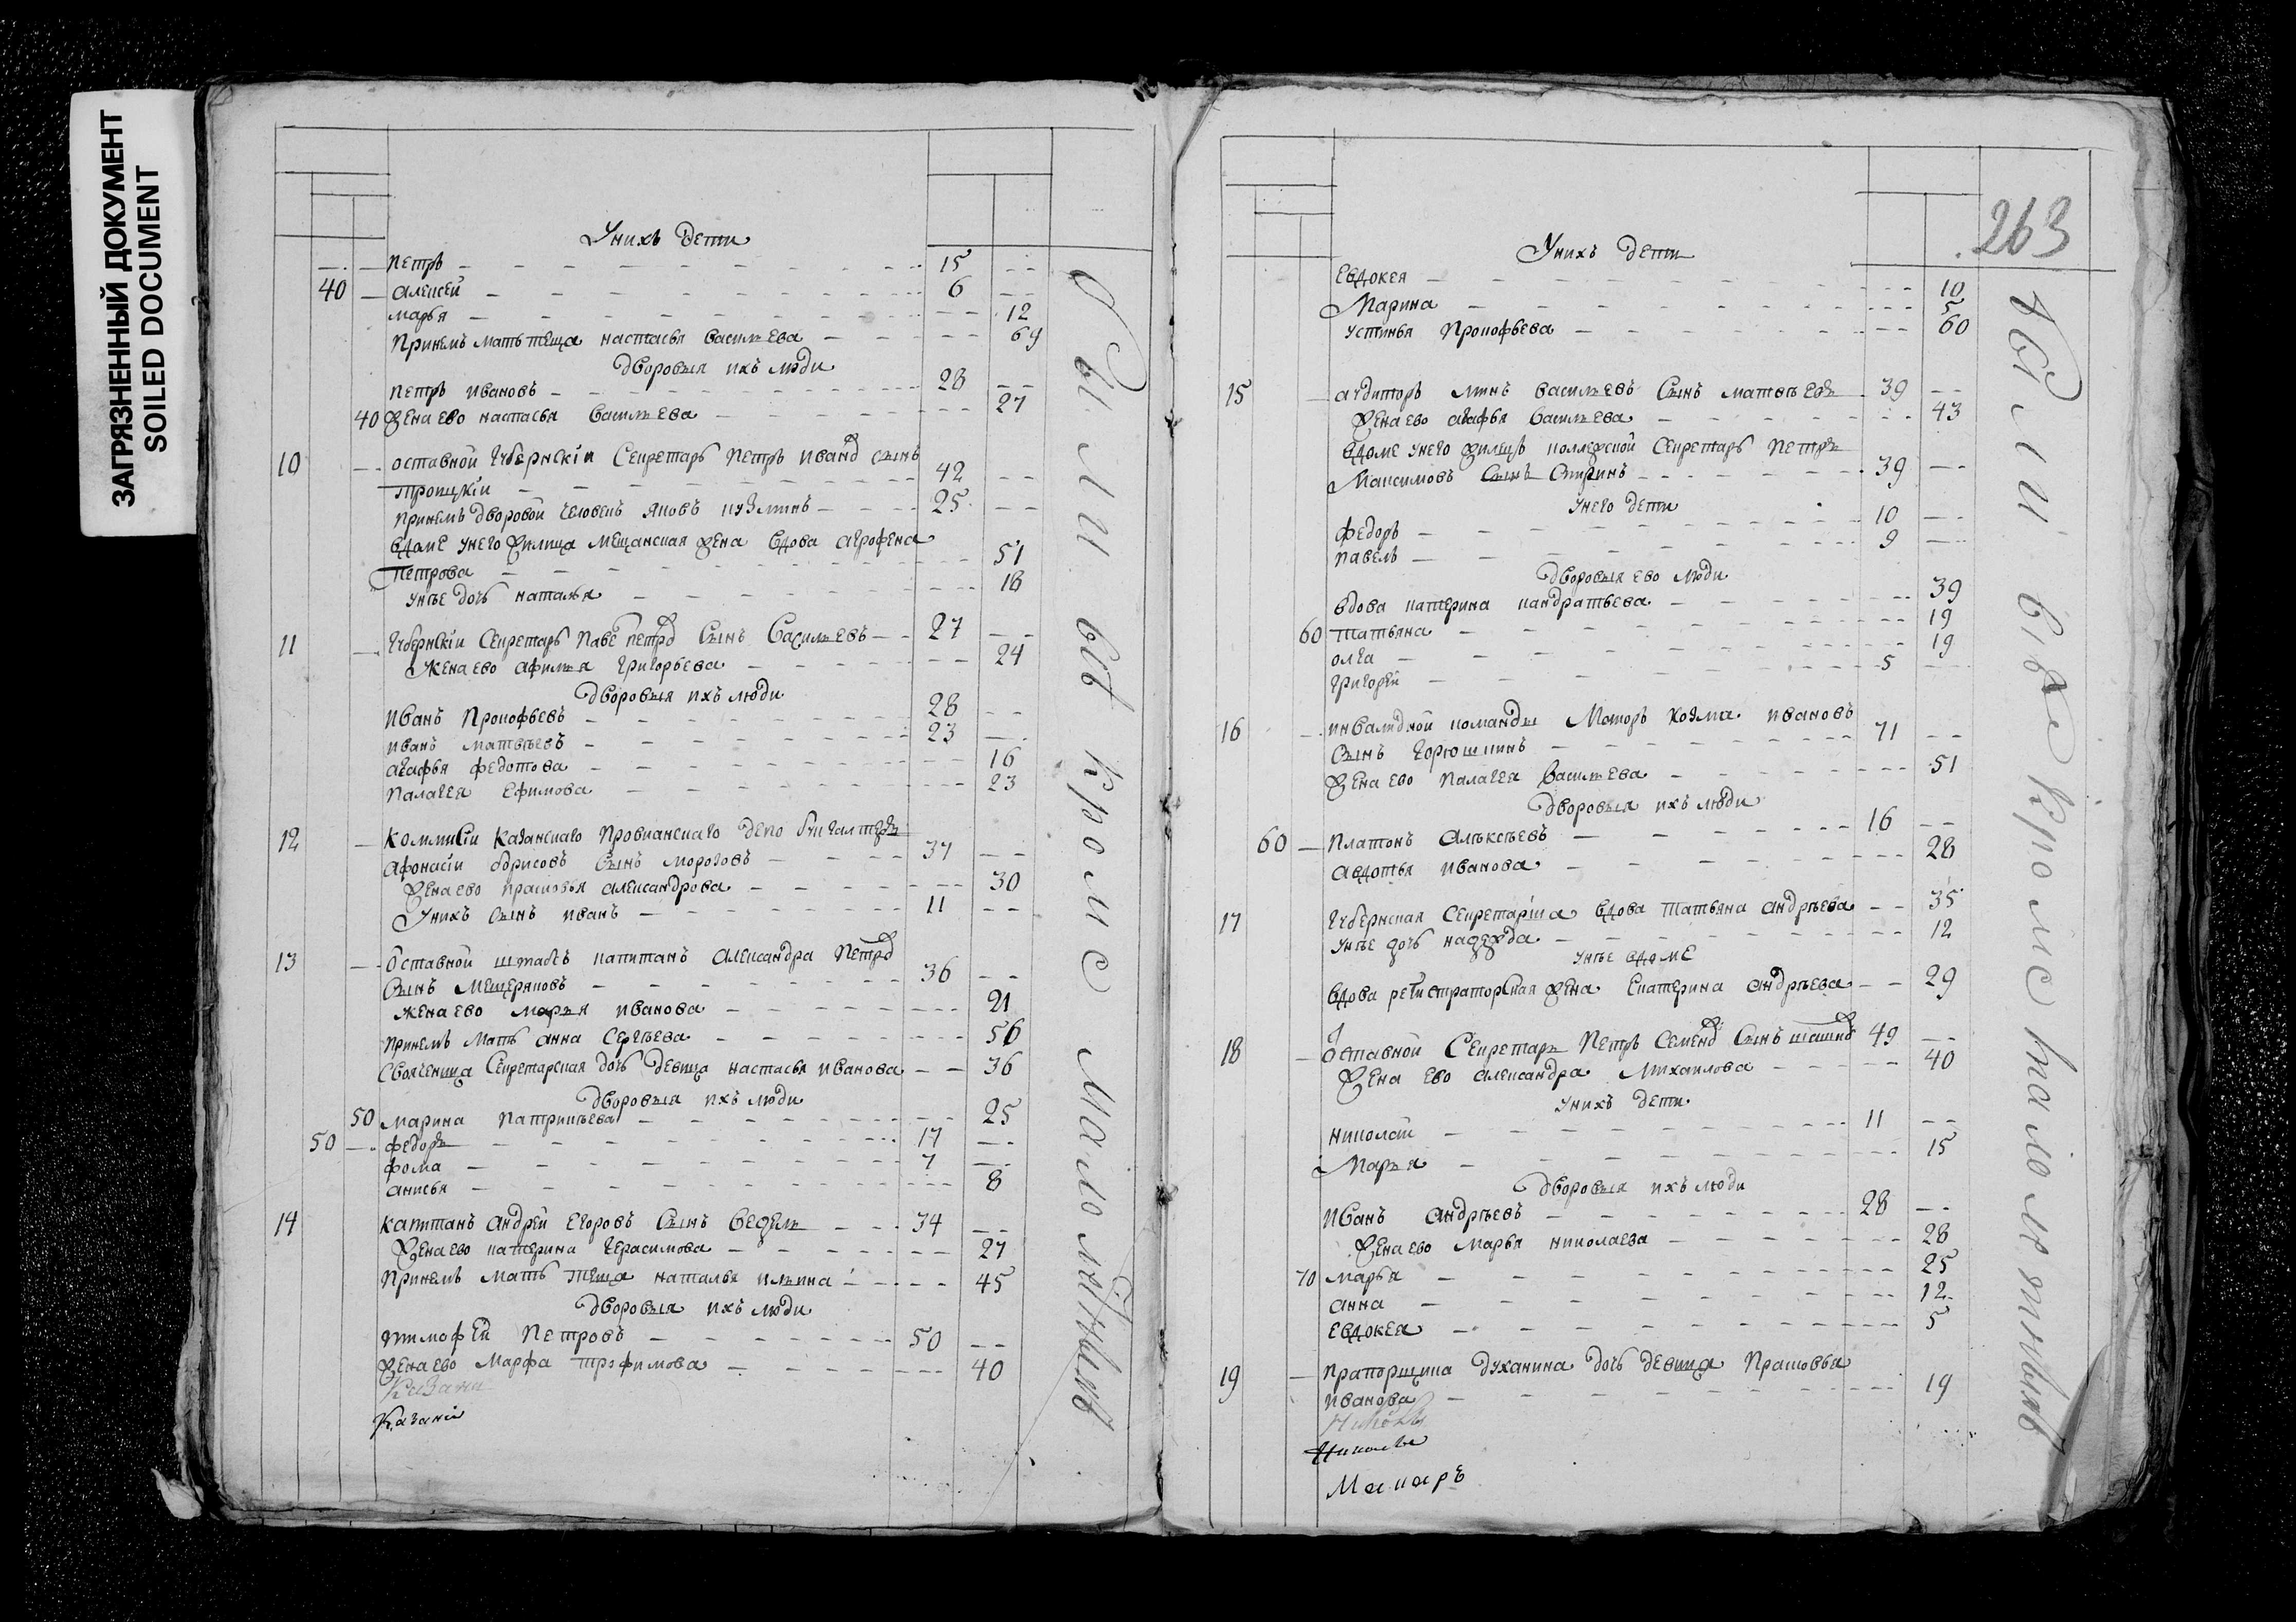 ЗАГРЯЗНЕННЫЙ ДОКУМЕНТ
SOILED DOCUMENT
Унихъ дети
Петръ 15
40 Алексей 6
Марья 12
Принемъ мать теща настасья васильева 69
Дворовыя ихъ люди
Петръ Ивановъ 28
40 Жена ево настасья васильева 27
10 Оставной губернскiи Секретарь Петръ Иванов сынъ
Троицкiи 42
Принемъ дворовой человекъ Яковъ кузминъ 25
Вдоме унего жилица мещанская жена вдова агрофена
Петрова 51
Унее дочь наталья 18
11 Губернскiи Секретарь Паве петров Сынъ Васильевъ 27
Жена ево Афимья григорьева 24
Дворовыя ихъ люди
Иванъ Прокофьевъ 28
Иванъ матвеевъ 23
агафья федотова 16
Палагея Ефимова 23
12 Коммисiи Казанскаго Провианскаго депо бухгалтеръ
Афонасiи борисовъ Сынъ морозовъ 37
Жена ево прасковья александрова 30
Унихъ сынъ иванъ 11
13 Оставной штабсъ капитанъ александра Петров
Сынъ Мещеряковъ 36
Жена ево марья иванова 21
принемъ мать анна Сергеева 56
Своячиница Секретарская дочь девица настасья иванова 36
Дворовыя ихъ люди
50 марина Патрикеева 25
50 федоръ 17
фома 7
анисья 8
14 Капитанъ андрей егоровъ Сынъ ведель 34
Жена ево катерина герасимова 27
Принемъ мать теща наталья ильина 45
Дворовыя ихъ люди
тимофей Петровъ 50
Жена ево марфа трофимова 40
Казани
Казани
Были всѣ кромѣ малолѣтныхъ
263
Унихъ дети
Евдокея 10
Марина 5
устинья Прокофьева 60
15 аудиторъ минъ васильевъ Сынъ матвѣевъ 39
Жена ево агафья васильева 43
Вдоме унего жилецъ коллежской Секретарь Петръ
Максимовъ Сынъ Спиринъ 39
Унего дети
федоръ 10
павелъ 9
Дворовыя ево люди
вдова катерина кандратьева 39
60 татьяна 19
олга 19
григорей 5
16 инвалидной команды Маиоръ Козма ивановъ
Сынъ горюшкинъ 71
Жена ево палагея васильева 51
Дворовыя ихъ люди
60 Платонъ алѣксѣевъ 16
авдотья иванова 28
17 губернская секретарша вдова татьяна андрѣева 35
унѣе дочь надежда 12
унѣе вдоме
вдова регистраторская жена екатерина андрѣева 29
18 Оставной Секретарь Петръ Семенов Сынъ шашин 49
Жена ево александра михаилова 40
Унихъ дети
николай 11
Марья 15
Дворовыя ихъ люди
Иванъ андрѣевъ 28
Жена ево марья николаева 28
70 марья 25
анна 12
евдокея 5
19 Прапорщика духанина дочь девица Прасковья
иванова 19
Макаръ
были всѣ кромѣ малолѣтныхъ